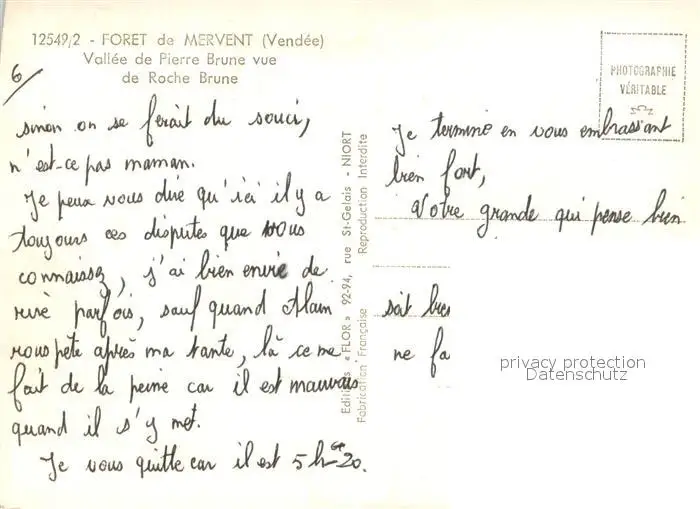 12549/2 - FORET de MERVENT (Vendée)
Vallée de Pierre Brune vue
de Roche Brune
6/
sinon on se ferait du souci,
n'est-ce pas maman.
Je peux vous dire qu'ici il y a
toujours ces disputes que vous
connaissez, j'ai bien envie de
rire parfois, sauf quand Alain
rouspète après ma tante, là ce me
fait de la peine car il est mauvais
quand il s'y met.
Je vous quitte car il est 5 h 20.
Editions « FLOR » 92-94, rue St-Gelais - NIORT
Fabrication Française Reproduction Interdite
PHOTOGRAPHIE
VÉRITABLE
Je termine en vous embrassant
bien fort,
Votre grande qui pense bien
soit
ne fa
privacy protection
Datenschutz